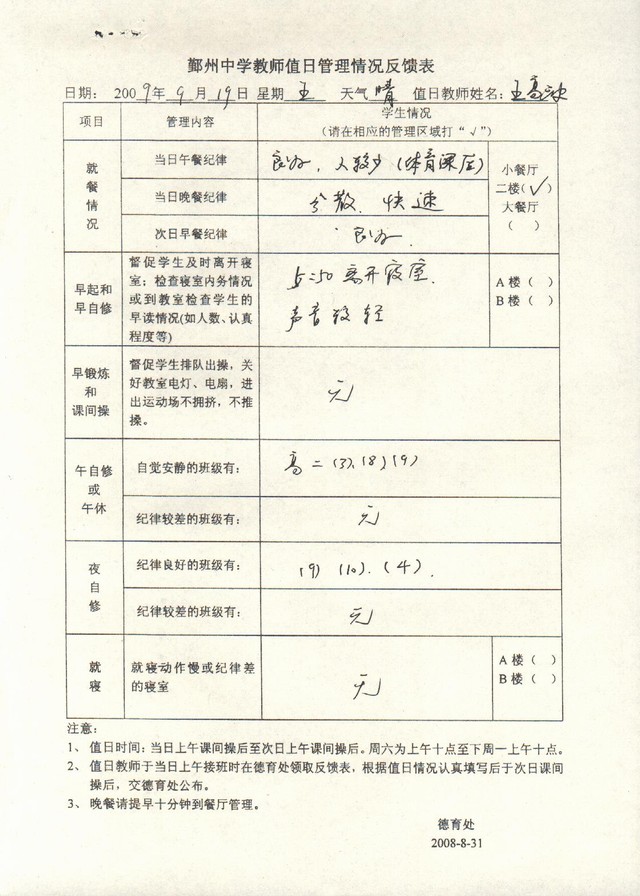 鄞州中学教师值日管理情况反馈表
日期： 2009年 9 月 19日 星期 五 天气 晴 值日教师姓名：王高
项目 管理内容 学生情况
（请在相应的管理区域打“√”）
就餐情况
当日午餐纪律 良好，人较少（体育课后）
当日晚餐纪律 分散、快速
次日早餐纪律 良好．
小餐厅
二楼（√）
大餐厅
（ ）
早起和
早自修
督促学生及时离开寝
室；检查寝室内务情况
或到教室检查学生的
早读情况(如人数、认真
程度等)
5:50 离开寝室．
声音较轻
A 楼（ ）
B 楼（ ）
早锻炼
和
课间操
督促学生排队出操，关
好教室电灯、电扇，进
出运动场不拥挤，不推
搡。
无
午自修
或
午休
自觉安静的班级有： 高二（3）、（8）、（9）
纪律较差的班级有： 无
夜自修
纪律良好的班级有： （9） （10）．（4）．
纪律较差的班级有： 无
就寝
就寝动作慢或纪律差
的寝室
无
A 楼（ ）
B 楼（ ）
注意：
1、 值日时间：当日上午课间操后至次日上午课间操后。周六为上午十点至下周一上午十点。
2、 值日教师于当日上午接班时在德育处领取反馈表，根据值日情况认真填写后于次日课间
操后，交德育处公布。
3、 晚餐请提早十分钟到餐厅管理。
德育处
2008-8-31